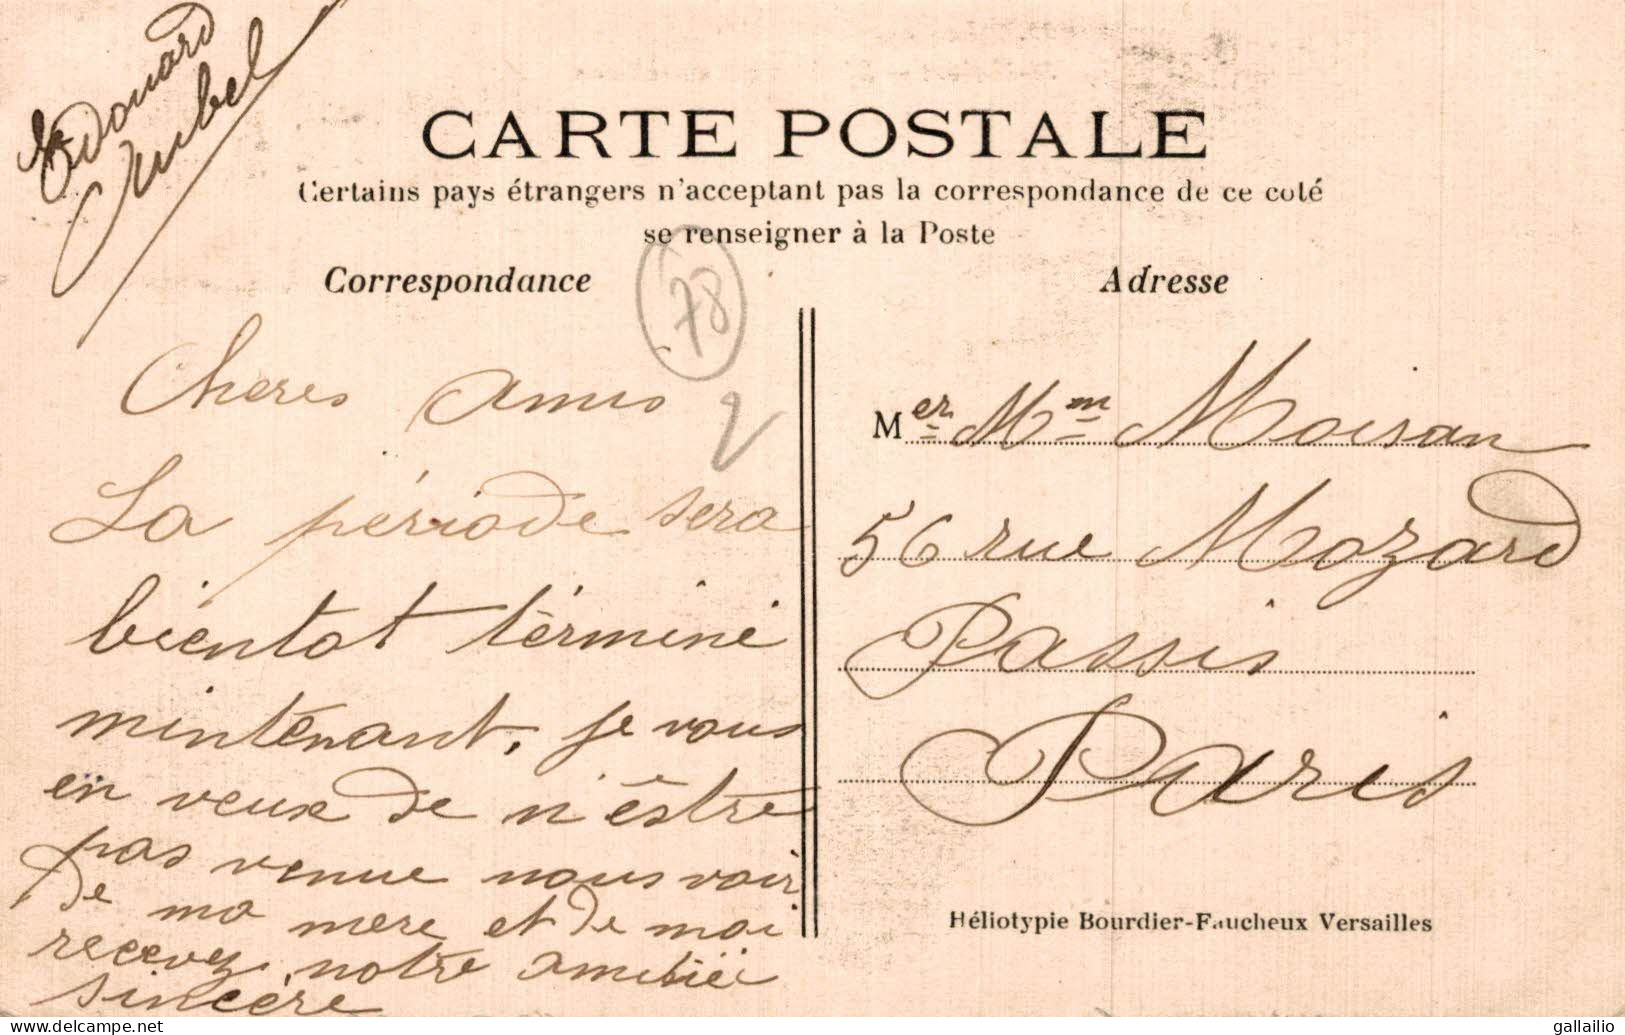 Edouard
CARTE POSTALE
Certains pays étrangers n'acceptant pas la correspondance de ce coté
se renseigner à la Poste
Correspondance
Adresse
78
2
Cheres Amis
La période sera
bientot términé
minténant, je vous
en veux de n'êstre
pas venue nous voir
de ma mere et de moi
recevez notre amitiéi
sincére
Mer Mm Moisan
56 rue Mozard
Passis
Paris
Héliotypie Bourdier-Faucheux Versailles
delcampe.net
gallailio